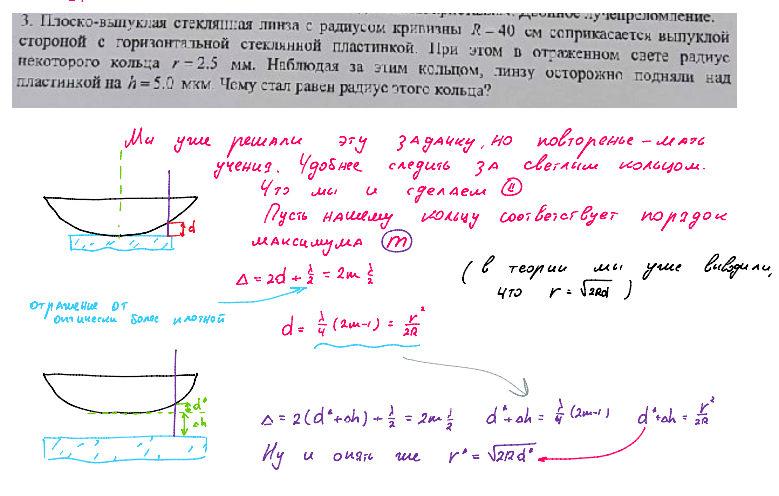 Двойное лучепреломление.
3. Плоско-выпуклая стеклянная линза с радиусом кривизны R = 40 см соприкасается выпуклой
стороной с горизонтальной стеклянной пластинкой. При этом в отраженном свете радиус
некоторого кольца r = 2.5 мм. Наблюдая за этим кольцом, линзу осторожно подняли над
пластинкой на h = 5.0 мкм. Чему стал равен радиус этого кольца?
Мы уже решали эту задачку, но повторенье – мать
учения. Удобнее следить за светлым кольцом.
Что мы и сделаем
Пусть нашему кольцу соответствует порядок
максимума m
d
Δ = 2d + λ/2 = 2m λ/2
(в теории мы уже выводили,
что r = √2Rd)
отражение от
оптически более плотной
d = λ/4 (2m-1) = r²/2R
d*
Δh
Δ = 2(d* + Δh) + λ/2 = 2m λ/2 d* + Δh = λ/4 (2m-1) d* + Δh = r²/2R
Ну и опять же r* = √2Rd*